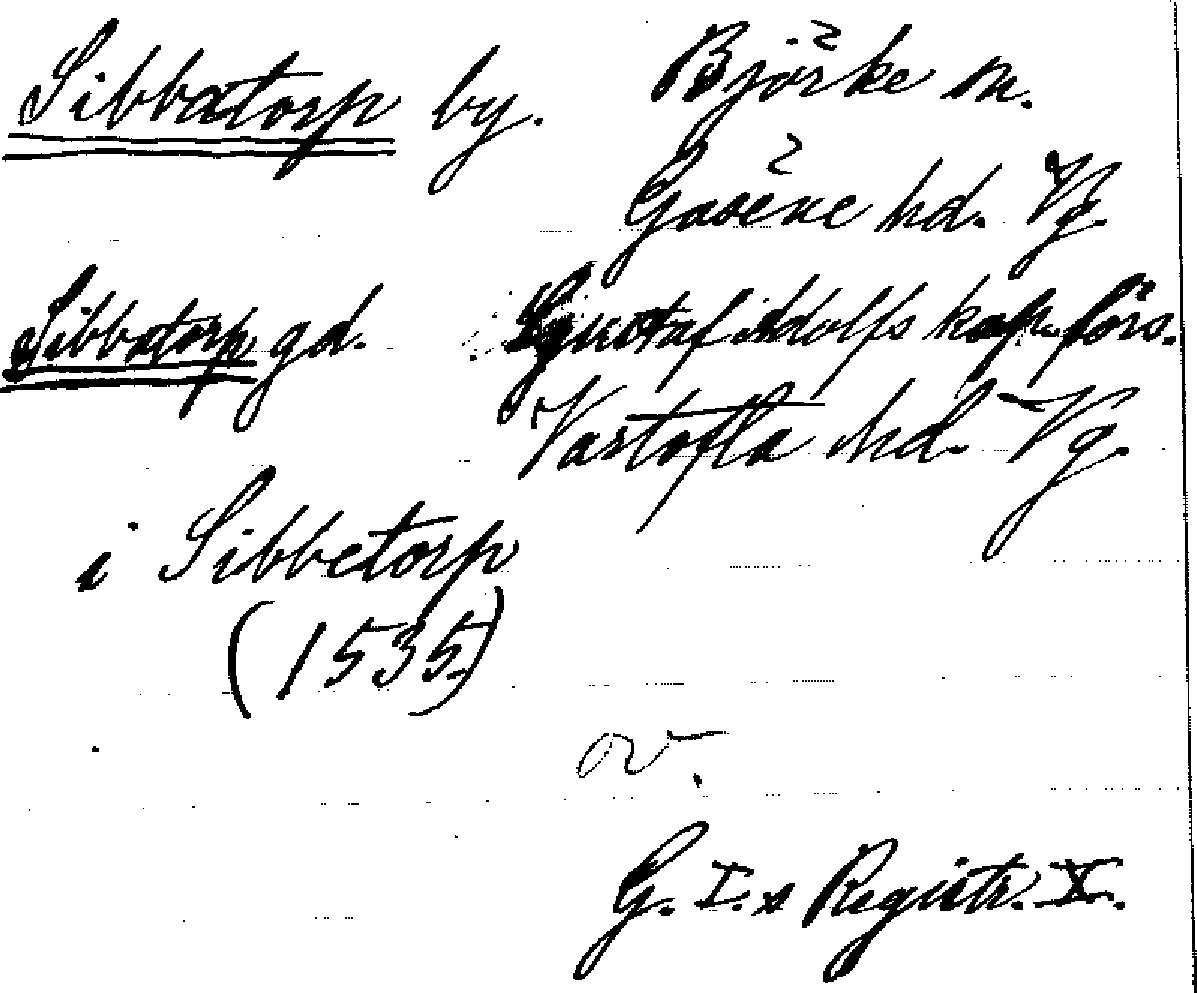 Sibbatorp by. Björke sn.
Gäsene hd. Vg.
Sibbatorp gd. Gustaf Adolfs kap. förs.
Vartofta hd. Vg.
i Sibbetorp
(1535)
ov.
G. I:s Registr. X.